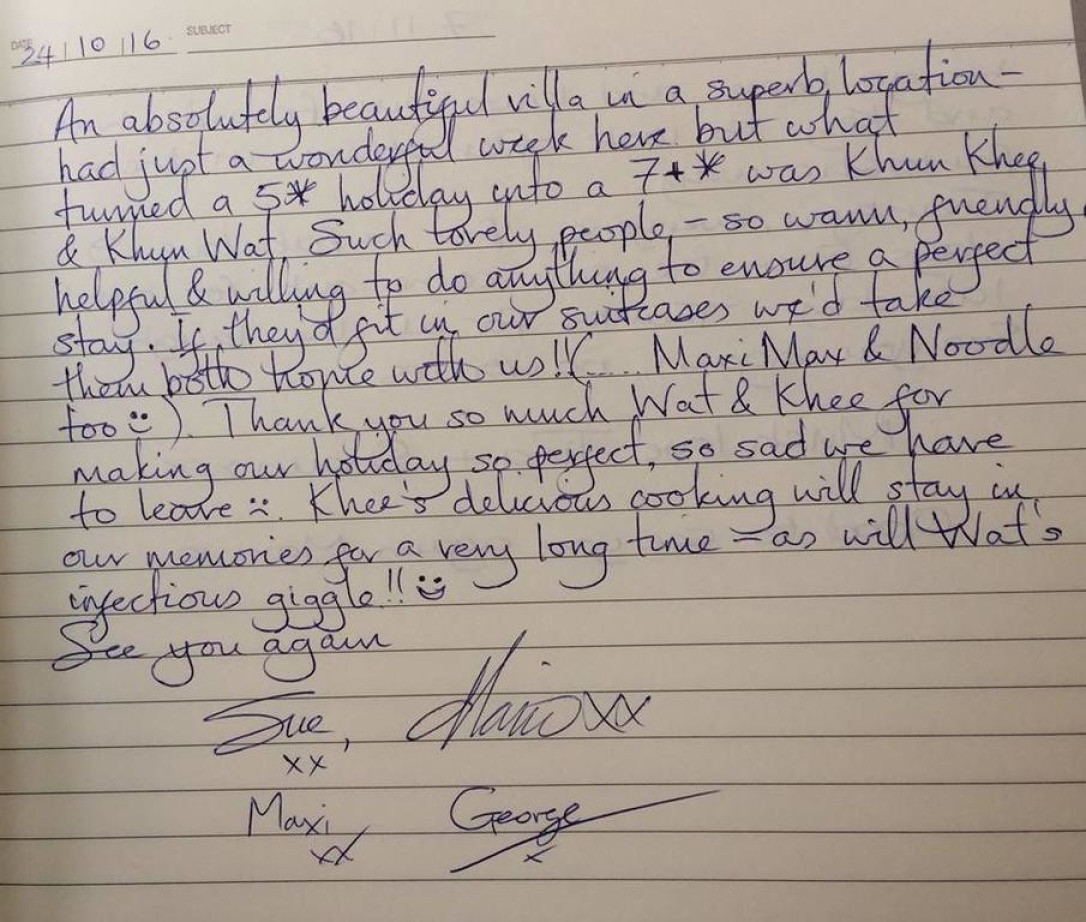 DATE 24/10/16 SUBJECT
An absolutely beautiful villa in a superb location -
had just a wonderful week here but what
turned a 5* holiday into a 7+* was Khun Khee
& Khun Wat. Such lovely people - so warm, friendly
helpful & willing to do anything to ensure a perfect
stay. If they'd fit in our suitcases we'd take
them both home with us!! (.... Maxi Max & Noodle
too :) ). Thank you so much Wat & Khee for
making our holiday so perfect, so sad we have
to leave :(. Khee's delicious cooking will stay in
our memories for a very long time - as will Wat's
infectious giggle!! :)
See you again
Sue, Mario xx
xx
Maxi George
xx x